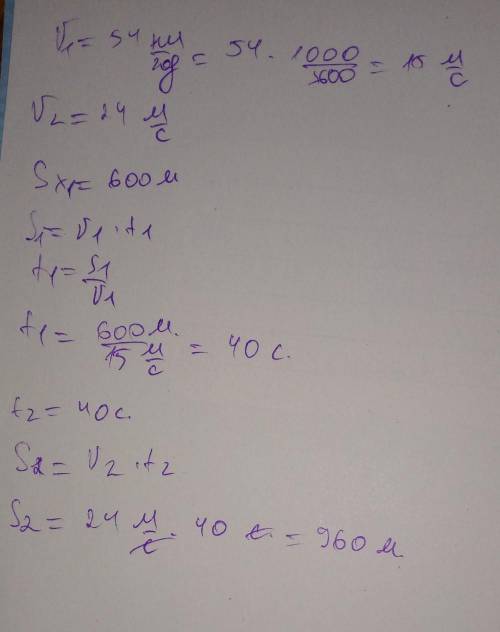 V₁ = 54 км/год = 54 · 1000/3600 = 15 м/с
V₂ = 24 м/с
Sx₁ = 600 м
S₁ = V₁ · t₁
t₁ = S₁/V₁
t₁ = 600 м/15 м/с = 40 с.
t₂ = 40 с.
S₂ = V₂ · t₂
S₂ = 24 м/с · 40 с = 960 м